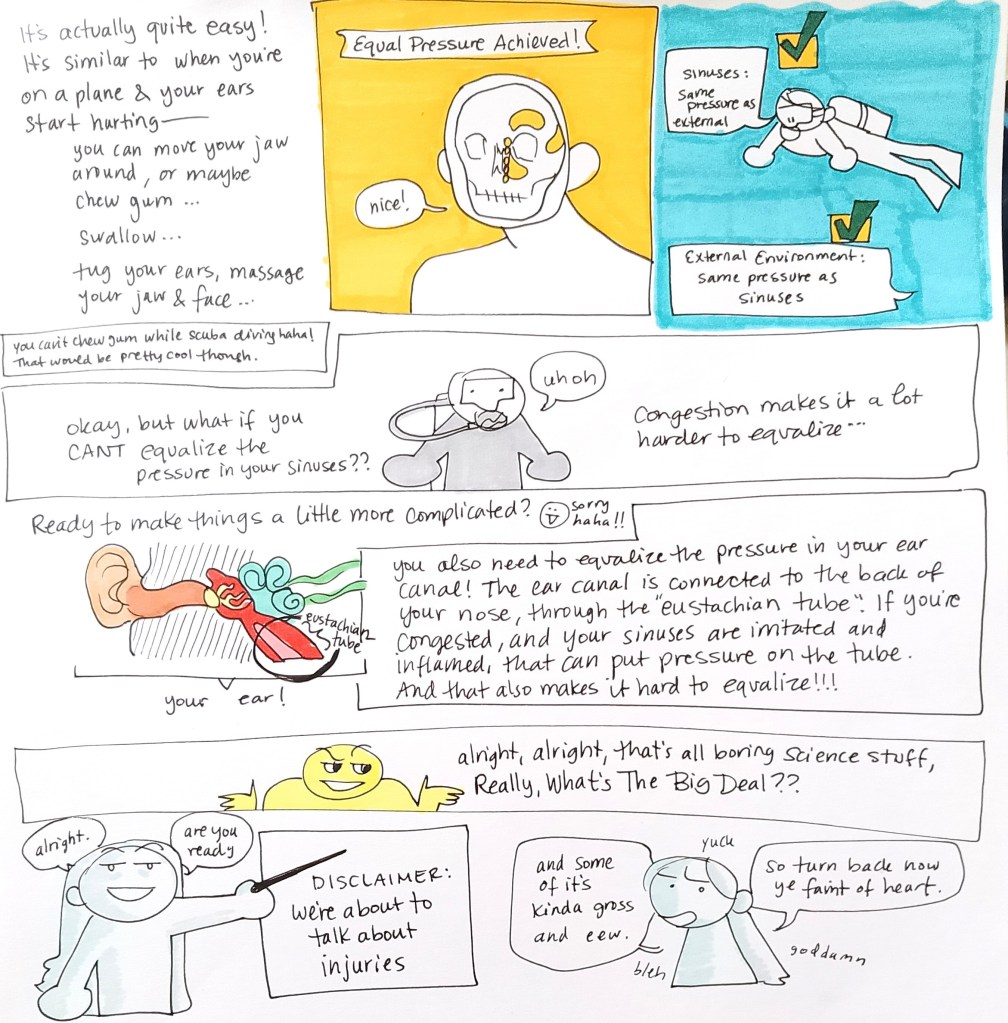 It's actually quite easy!
It's similar to when you're
on a plane & your ears
start hurting—
you can move your jaw
around, or maybe
chew gum ...
swallow...
tug your ears, massage
your jaw & face...
Equal Pressure Achieved!
nice!
sinuses:
same
pressure as
external
External Environment:
same pressure as
sinuses
you can't chew gum while scuba diving haha!
That would be pretty cool though.
okay, but what if you
CANT equalize the
pressure in your sinuses??
uh oh
Congestion makes it a lot
harder to equalize...
Ready to make things a little more complicated?
sorry
haha!!
eustachian
tube
your ear!
you also need to equalize the pressure in your ear
canal! The ear canal is connected to the back of
your nose, through the "eustachian tube". If you're
congested, and your sinuses are irritated and
inflamed, that can put pressure on the tube.
And that also makes it hard to equalize!!!
alright, alright, that's all boring science stuff,
Really, What's The Big Deal??
alright.
are you
ready
DISCLAIMER:
we're about to
talk about
injuries
and some
of it's
kinda gross
and eew.
yuck
bleh
So turn back now
ye faint of heart.
goddamn